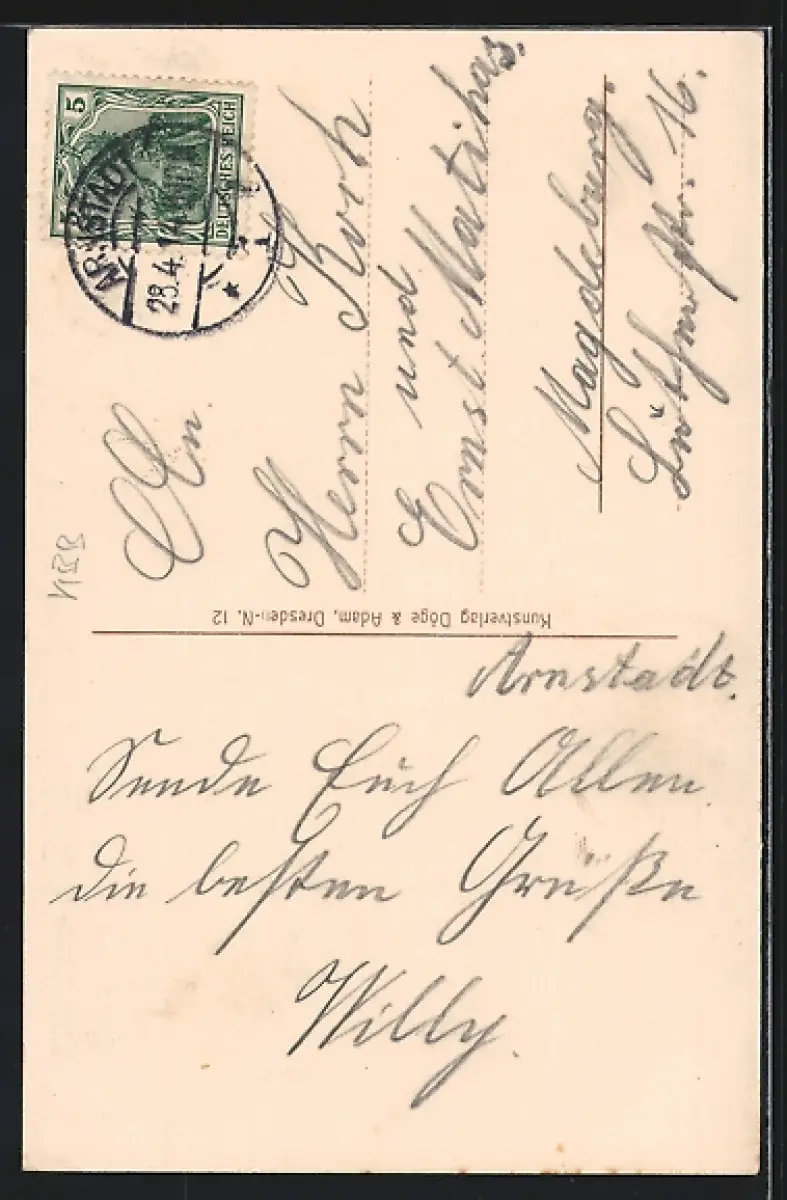 5
DEUTSCHES REICH
ARNSTADT
28.4.
1
En.
Herrn Koch
und
Ernst Matthas.
Magdeburg.
Lutherstr. 16.
Kunstverlag Döge & Adam, Dresden-N. 12
Arnstadt.
Sende Euch Allen
die besten Grüße
Willy.